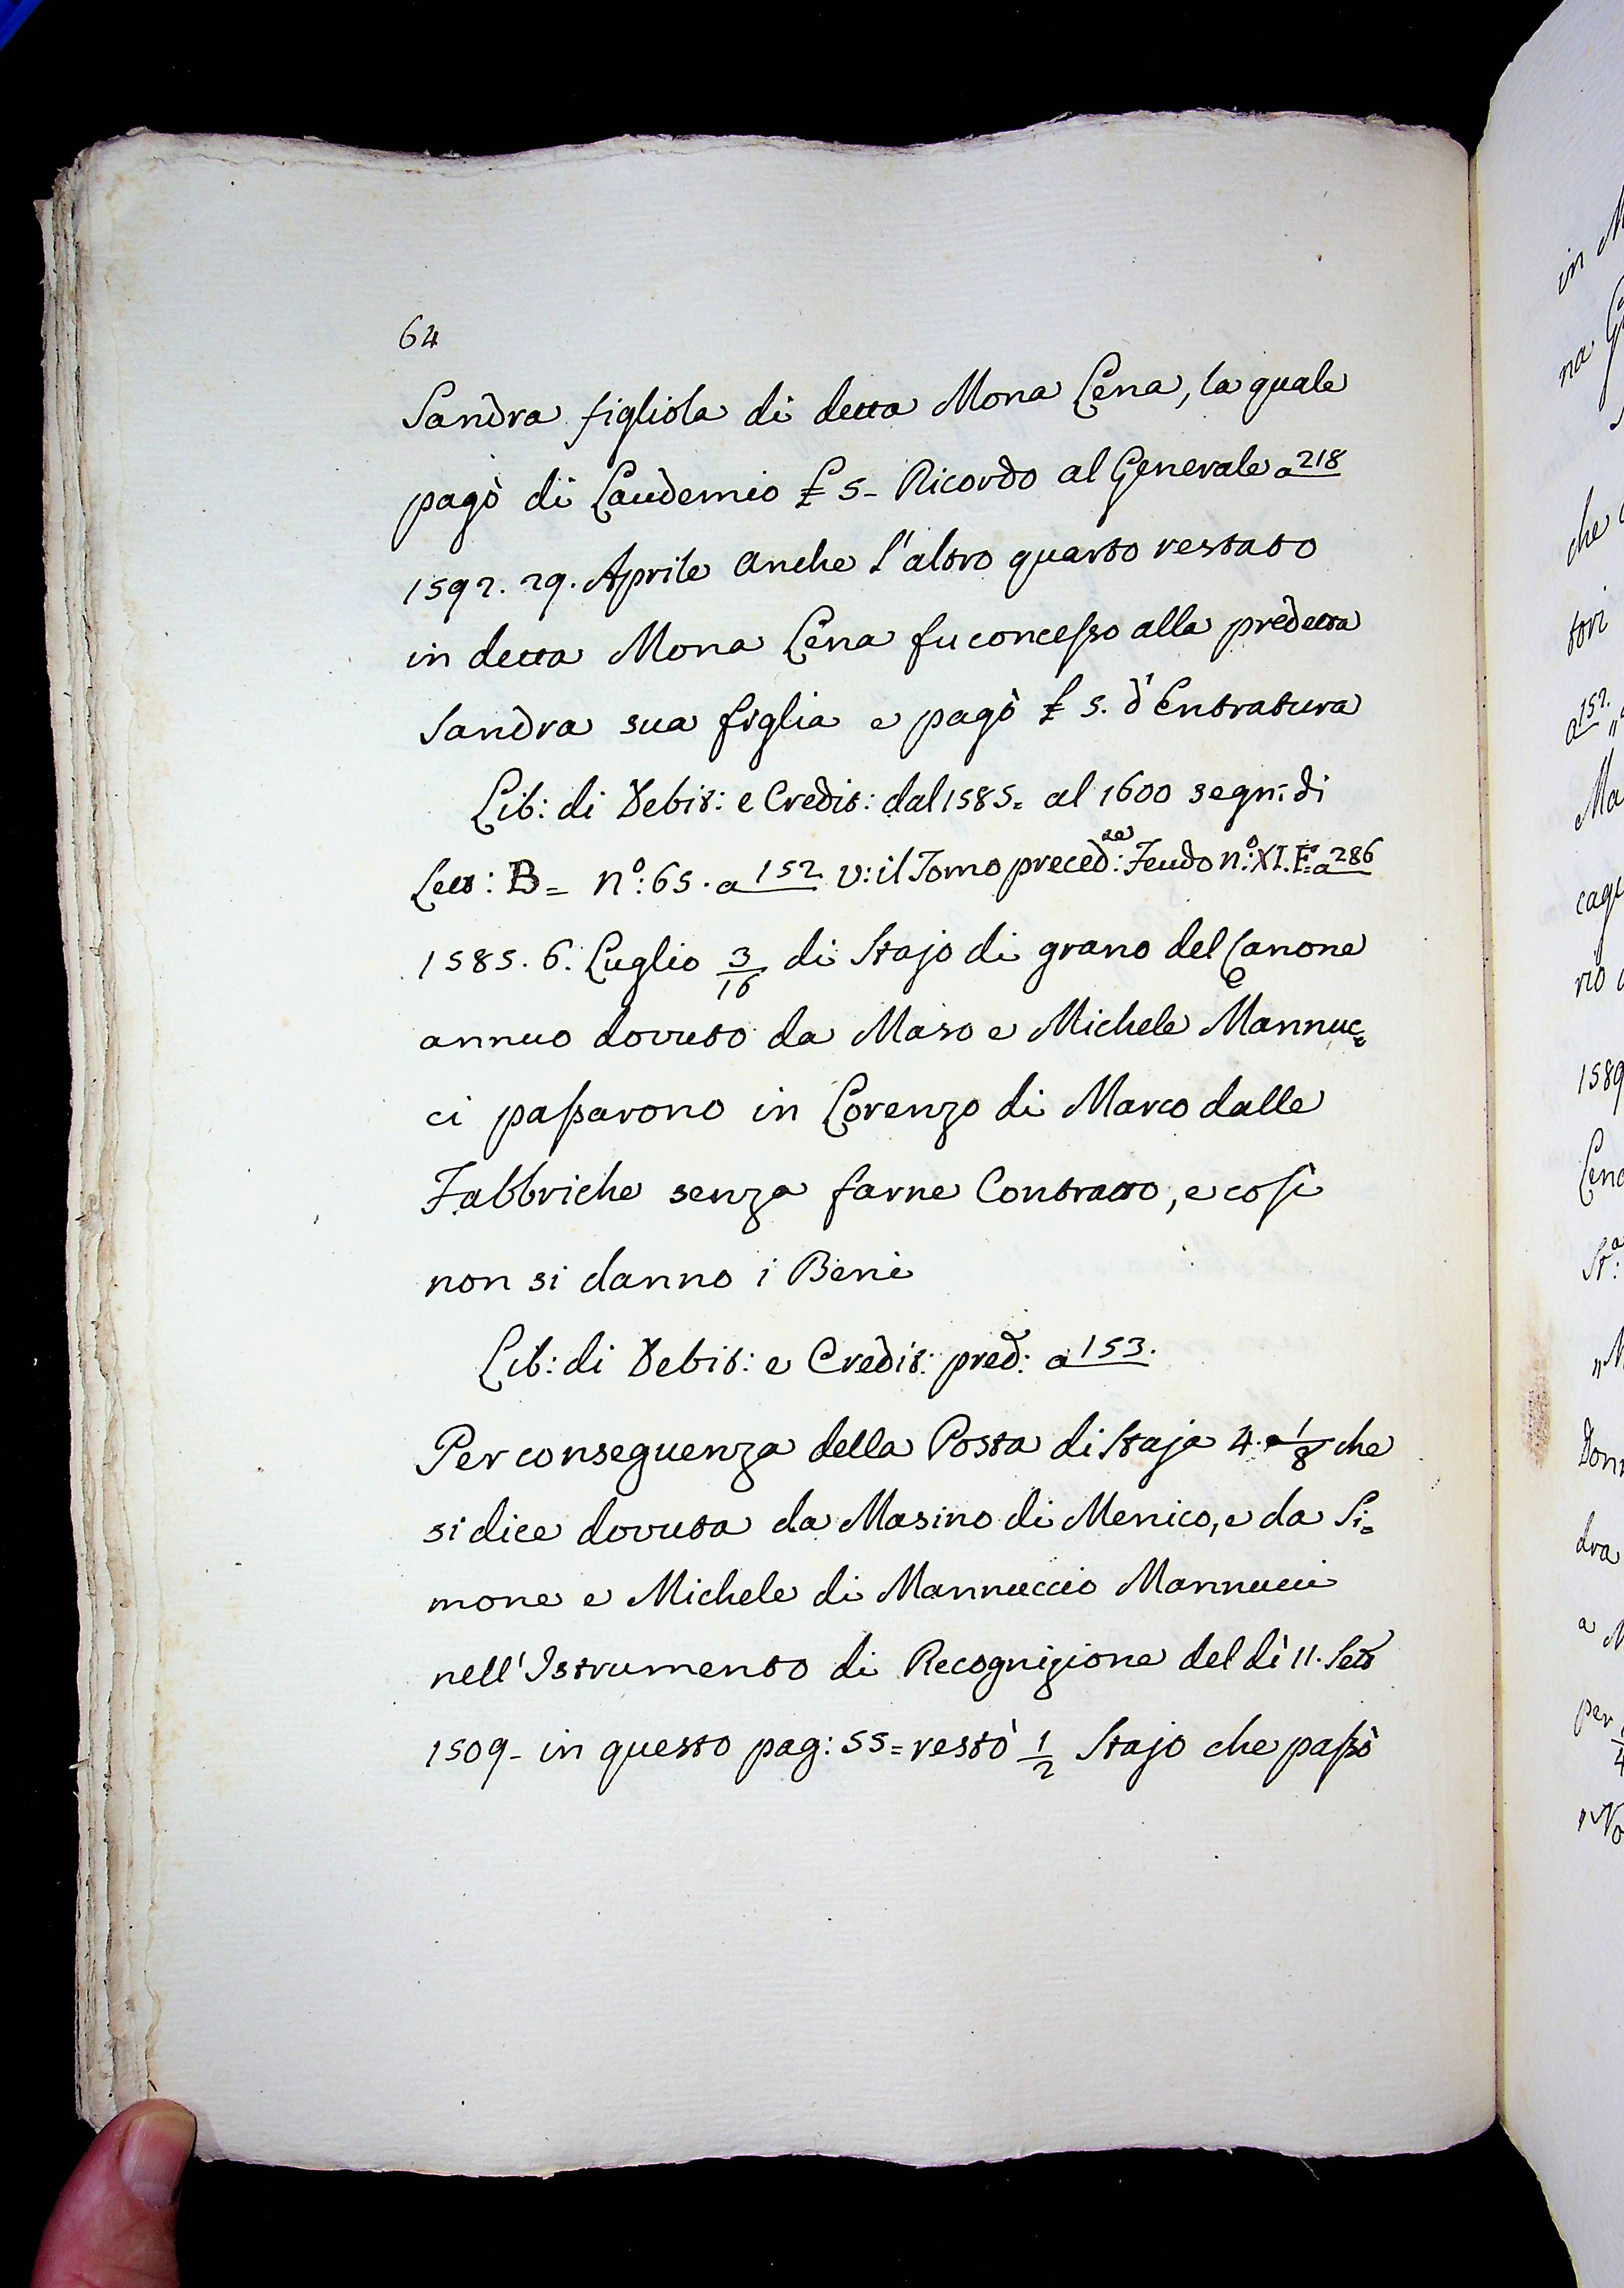 64
Sandra figliola di detta Mona Lena, la quale
pagò di Laudemio £ 5- Ricordo al Generale a 218
1592. 29. Aprile Anche l'altro quarto restato
in detta Mona Lena fu concesso alla predetta
Sandra sua figlia e pagò £ 5. d'Entratura
Lib: di Debit: e Credit: dal 1585= al 1600 segn: di
Lett: B= n.º: 65. a 152. v: il Tomo preced:te Feudo n.º: XI. F.º a 286
1585. 6. Luglio 3/16 di Stajo di grano del Canone
annuo dovuto da Maso e Michele Mannuc=
ci passarono in Lorenzo di Marco dalle
Fabbriche senza farne Contratto, e così
non si danno i Beni
Lib: di Debit: e Credit: pred: a 153.
Per conseguenza della Posta di Staja 4. e 1/8 che
si dice dovuta da Masino di Menico, e da Si=
mone e Michele di Mannuccio Mannucci
nell'Istrumento di Recognizione del dì 11. Sett
1509- in questo pag: 55= restò 1/2 Stajo che passò
in
na
che
tori
a 152.
Ma
rio
1589
Lena
St:a
dra
a
per